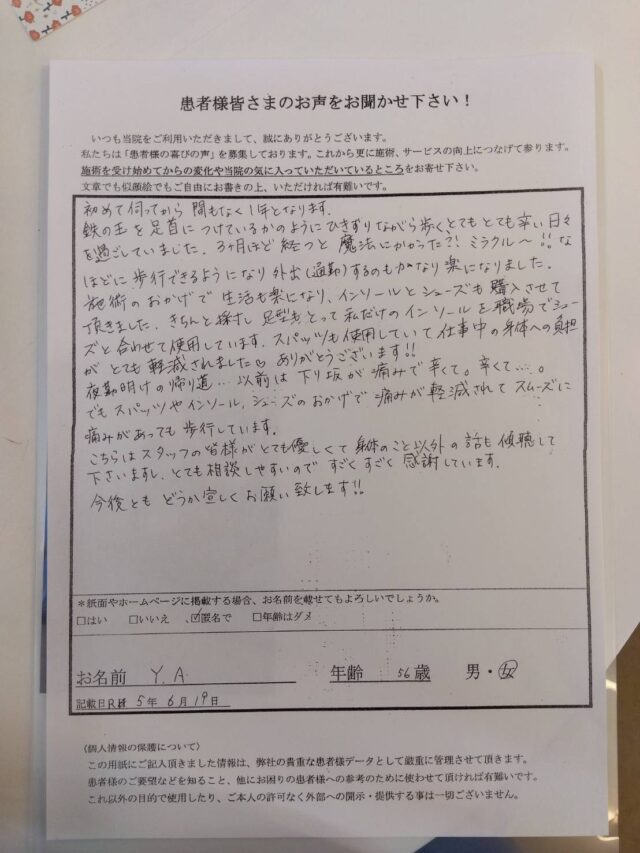 患者様皆さまのお声をお聞かせ下さい！
いつも当院をご利用いただきまして、誠にありがとうございます。
私たちは「患者様の喜びの声」を募集しております。これから更に施術、サービスの向上につなげて参ります。
施術を受け始めてからの変化や当院の気に入っていただいているところをお寄せ下さい。
文章でも似顔絵でもご自由にお書きの上、いただければ有難いです。
初めて伺ってから 間もなく1年となります。
鉄の玉を足首に つけているかのようにひきずりながら歩くとてもとても辛い日々
を過ごしていました。3ヶ月ほど経つと 魔法にかかった?! ミラクル〜!! な
ほどに歩行できるようになり 外出(通勤)するのもかなり楽になりました。
施術のおかげで 生活も楽になり、インソールとシューズも購入させて
頂きました。きちんと採寸し 足型もとって私だけのインソールを職場でシュー
ズと合わせて使用しています。スパッツも使用していて仕事中の身体への負担
が とても軽減されました♡ ありがとうございます!!
夜勤明けの帰り道… 以前は 下り坂が痛みで辛くて。辛くて…。
でもスパッツやインソール、シューズのおかげで 痛みが軽減されて スムーズに
痛みがあっても 歩行しています。
こちらはスタッフの皆様がとても優しくて身体のこと以外の話も傾聴して
下さいますし、とても相談しやすいので すごくすごく感謝しています。
今後とも どうか宜しくお願い致します!!
＊紙面やホームページに掲載する場合、お名前を載せてもよろしいでしょうか。
□はい □いいえ ☑匿名で □年齢はダメ
お名前 Y.A. 年齢 56歳 男・女
記載日R 5年 6月 19日
〈個人情報の保護について〉
この用紙にご記入頂きました情報は、弊社の貴重な患者様データとして厳重に管理させて頂きます。
患者様のご要望などを知ること、他にお困りの患者様への参考のために使わせて頂ければ有難いです。
これ以外の目的で使用したり、ご本人の許可なく外部への開示・提供する事は一切ございません。